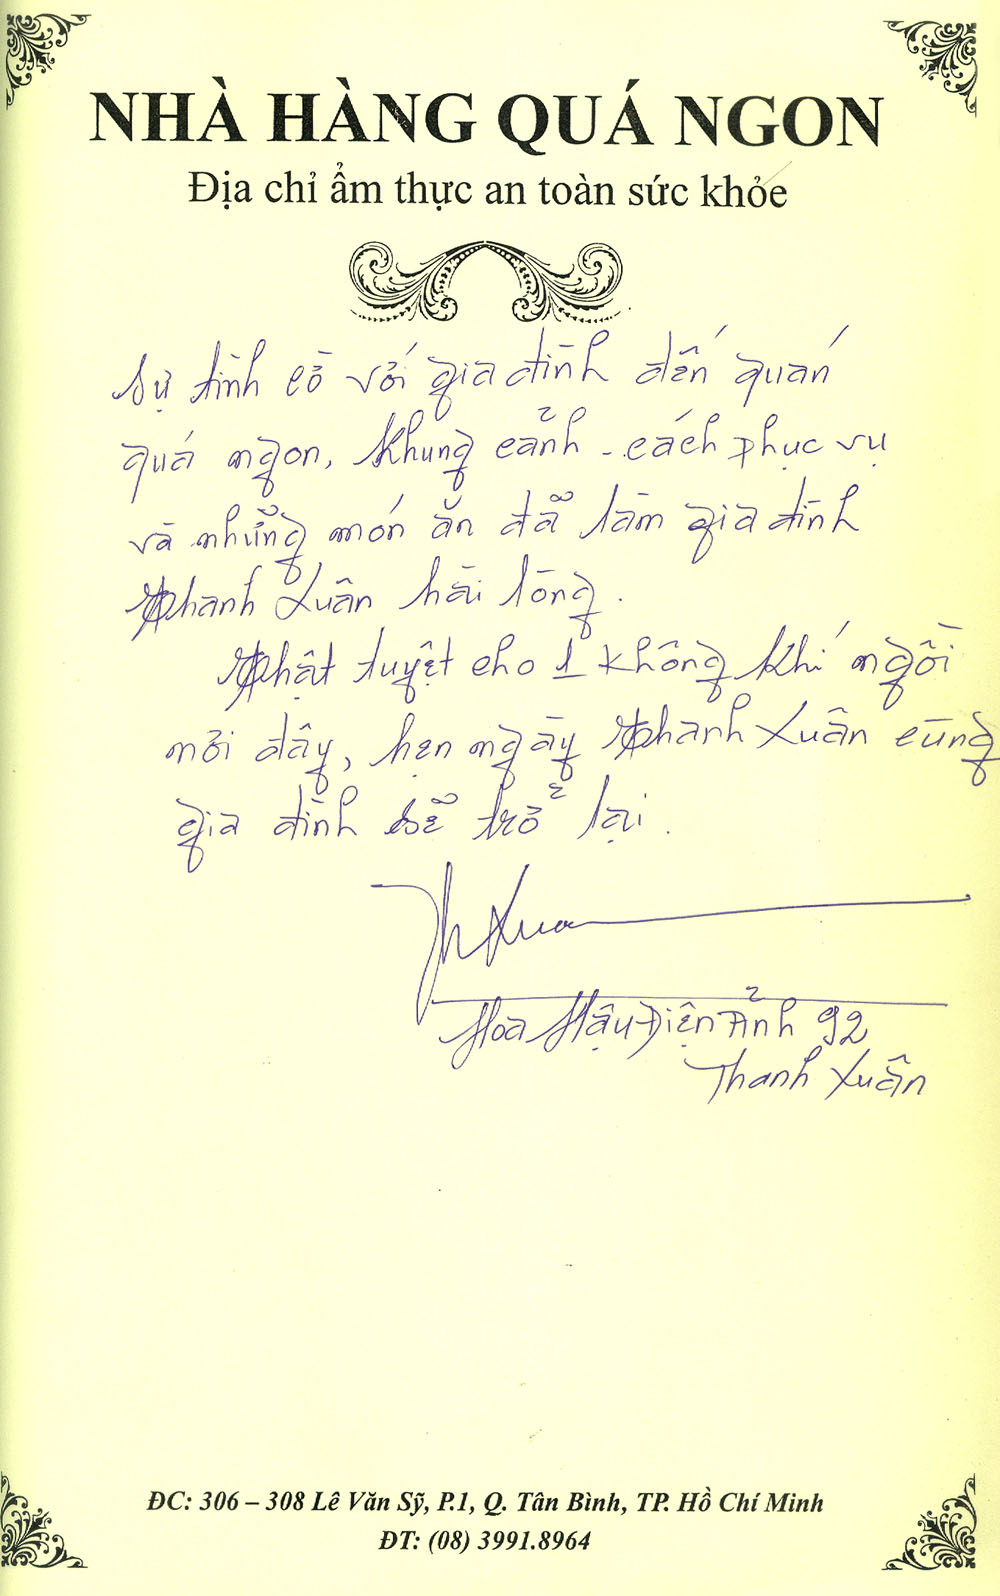 NHÀ HÀNG QUÁ NGON
Địa chỉ ẩm thực an toàn sức khỏe
Sự tình cờ với gia đình đến quán
quá ngon, khung cảnh - cách phục vụ
và những món ăn đã làm gia đình
Thanh Xuân hài lòng.
Thật tuyệt cho 1 không khí ngồi
nơi đây, hẹn ngày Thanh Xuân cùng
gia đình sẽ trở lại.
Th Xuan
Hoa Hậu Điện Ảnh 92
Thanh Xuân
ĐC: 306 – 308 Lê Văn Sỹ, P.1, Q. Tân Bình, TP. Hồ Chí Minh
ĐT: (08) 3991.8964